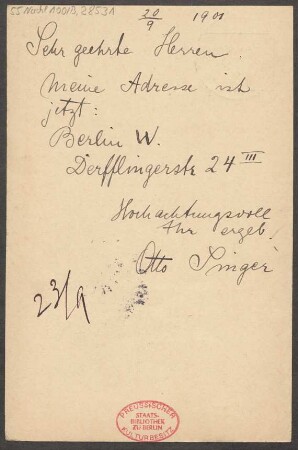 55 Nachl 100/B, 2853A
20/9 1901
Sehr geehrte Herren.
Meine Adresse ist
jetzt:
Berlin W.
Derfflingerste 24 III
Hochachtungsvoll
Ihr ergeb!
Otto Singer
23/9
PREUSSISCHER
STAATS-
BIBLIOTHEK
ZU BERLIN
KULTURBESITZ